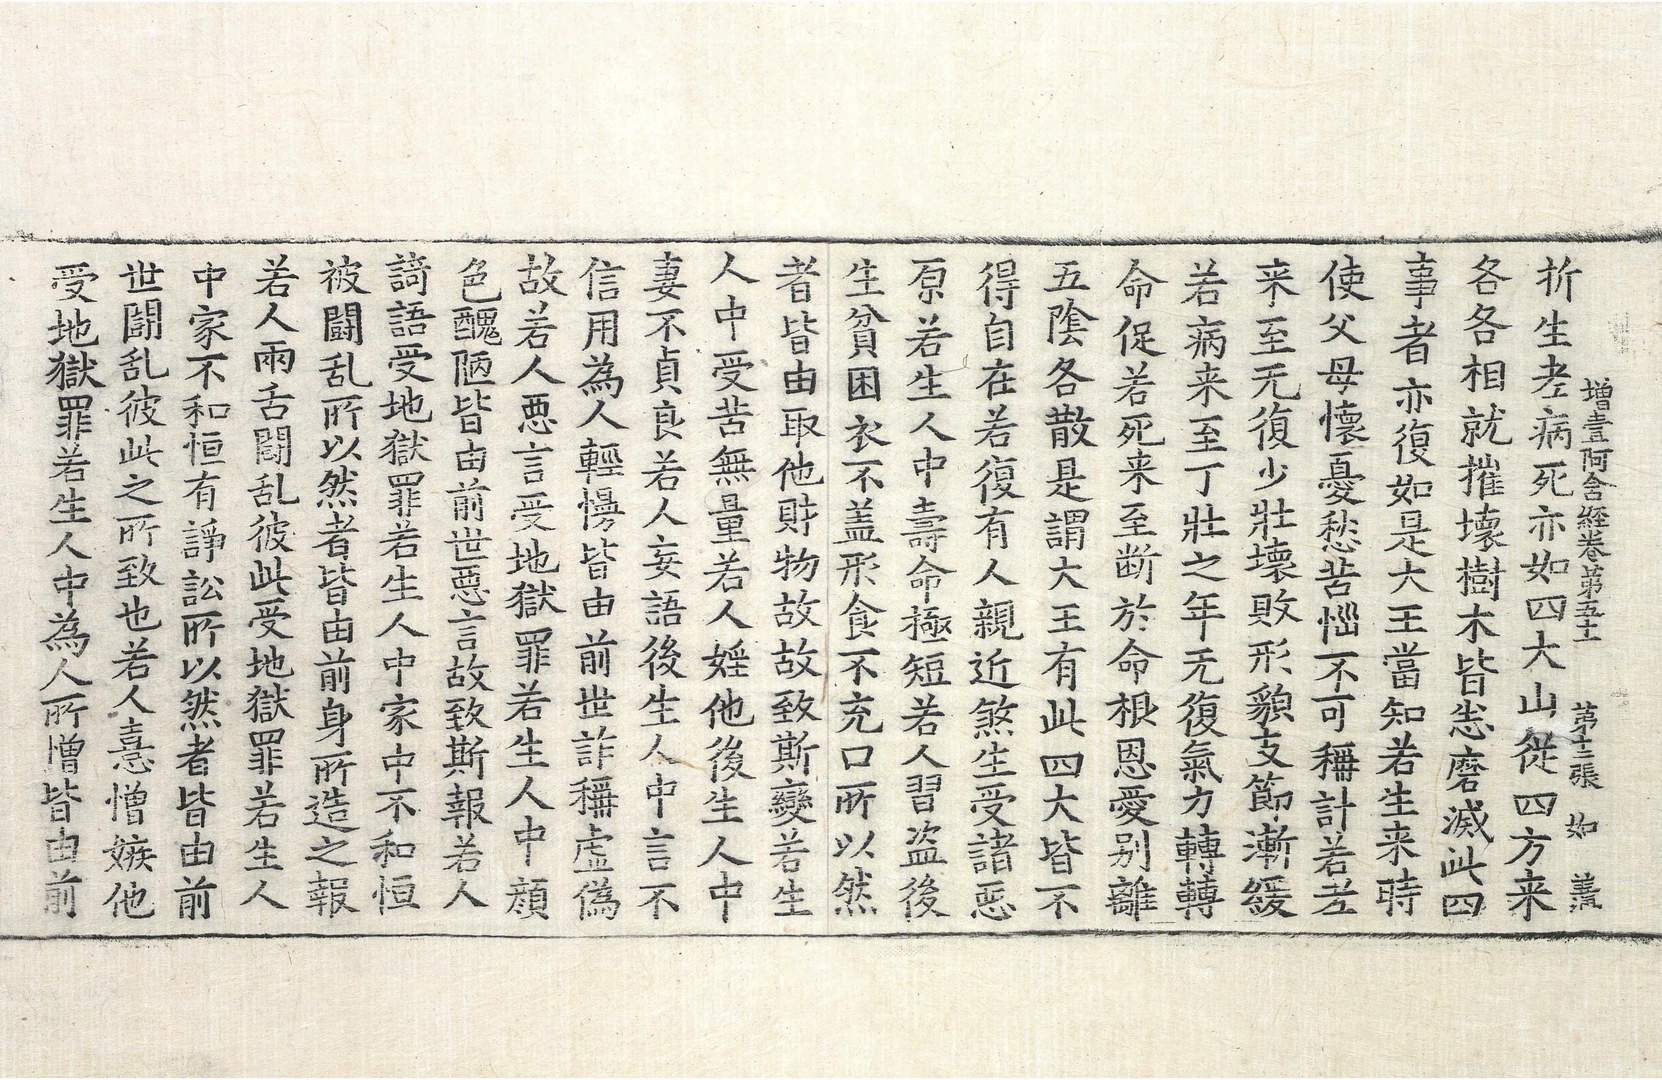 增壹阿含経卷第五十一 第十三張 如 羔
折生老病死亦如四大山從四方来
各各相就摧壞樹木皆悉磨滅此四
事者亦復如是大王當知若生来時
使父母懷憂愁苦惱不可稱計若老
来至无復少壯壞敗形貌支節漸緩
若病来至丁壯之年无復氣力轉轉
命促若死来至断於命根恩愛别離
五隂各散是謂大王有此四大皆不
得自在若復有人親近煞生受諸惡
原若生人中壽命極短若人習盗後
生貧困衣不盖形食不充口所以然
者皆由取他財物故故致斯變若生
人中受苦無量若人婬他後生人中
妻不貞良若人妄語後生人中言不
信用為人輕慢皆由前世詐稱虛偽
故若人惡言受地獄罪若生人中顔
色醜陋皆由前世惡言故致斯報若人
䛴語受地獄罪若生人中家中不和恒
被闘乱所以然者皆由前身所造之報
若人兩舌闘乱彼此受地獄罪若生人
中家不和恒有諍訟所以然者皆由前
世闘乱彼此之所致也若人憙憎嫉他
受地獄罪若生人中為人所憎皆由前